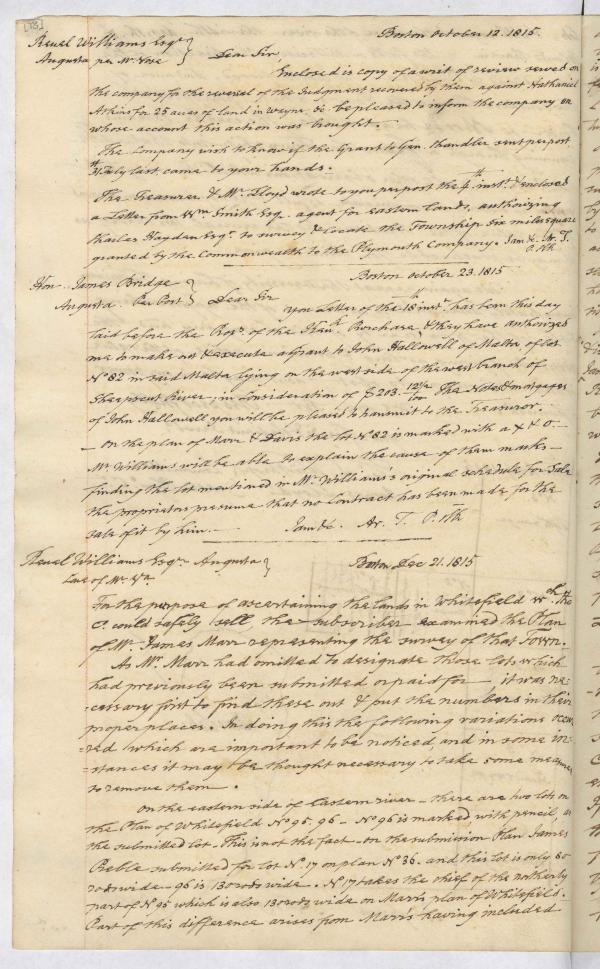 [73]
Boston October 12. 1815.
Reuel Williams Esqr
Augusta per Mr Vose } Dear Sir,
Enclosed is copy of a writ of review served on
the company for the reversal of the Judgment recovered by them against Nathaniel
Atkins for 25 acres of land in Wayne, &c be pleased to inform the company on
whose account this action was brought.
The Company wish to know if the Grant to Gen. Chandler sent per post
31st July last came to your hands.
The Treasurer & Mr. Lloyd wrote to you per post the 4th inst. & enclosed
a Letter from Wm Smith Esq. agent for eastern lands, authorizing
Charles Hayden Esqr. to survey & locate the Township Six miles square
granted by the Commonwealth to the Plymouth Company. I am &c. Ar. T.
P. Ck
Boston October 23. 1815
Hon. James Bridge
Augusta Per Post } Dear Sir
your Letter of the 18th inst. has been this day
laid before the Propr. of the Kenk. Purchase & they have authorized
me to make out & execute a Grant to John Hallowell of Malta of lot
No 82 in said Malta lying on the west side of the west branch of
Sheepscut River, in consideration of $203. 12½/100 The Notes & mortgages
of John Hallowell you will be pleased to transmit to the Treasurer.
— On the plan of Marr & Davis the lot No 82 is marked with a X & O —
Mr. Williams will be able to explain the cause of them marks —
finding the lot mentioned in Mr. Williams's original schedule for Sale
the proprietors presume that no Contract has been made for the
sale of it by him — I am &c. Ar. T. P. Ck
Reuel Williams Esqr. Augusta }
Care of Mr.
Boston Dec 21. 1815
For the purpose of ascertaining the lands in Whitefield wch. the
Co. could safely sell, the subscriber examined the Plan
of Mr. James Marr representing the survey of that Town.
As Mr. Marr had omitted to designate those lots which
had previously been submitted or paid for — it was ne=
=cessary first to find these out & put the numbers in their
proper places. In doing this the following variations occur=
=red which are important to be noticed, and in some in=
=stances it may be thought necessary to take some measures
to remove them.
On the eastern side of Eastern river — there are two lots on
the Plan of Whitefield No 95. 96 — No 96 is marked with pencil, as
the submitted lot. This is not the fact — on the submission Plan James
Preble submitted for lot No 17 on plan No 36 — and this lot is only 50
rods wide — 96 is 130 rods wide. No 17 takes the chief of the northerly
part of No 95 which is also 130 rods wide on Marr's plan of Whitefield.
Part of this difference arises from Marr's having included